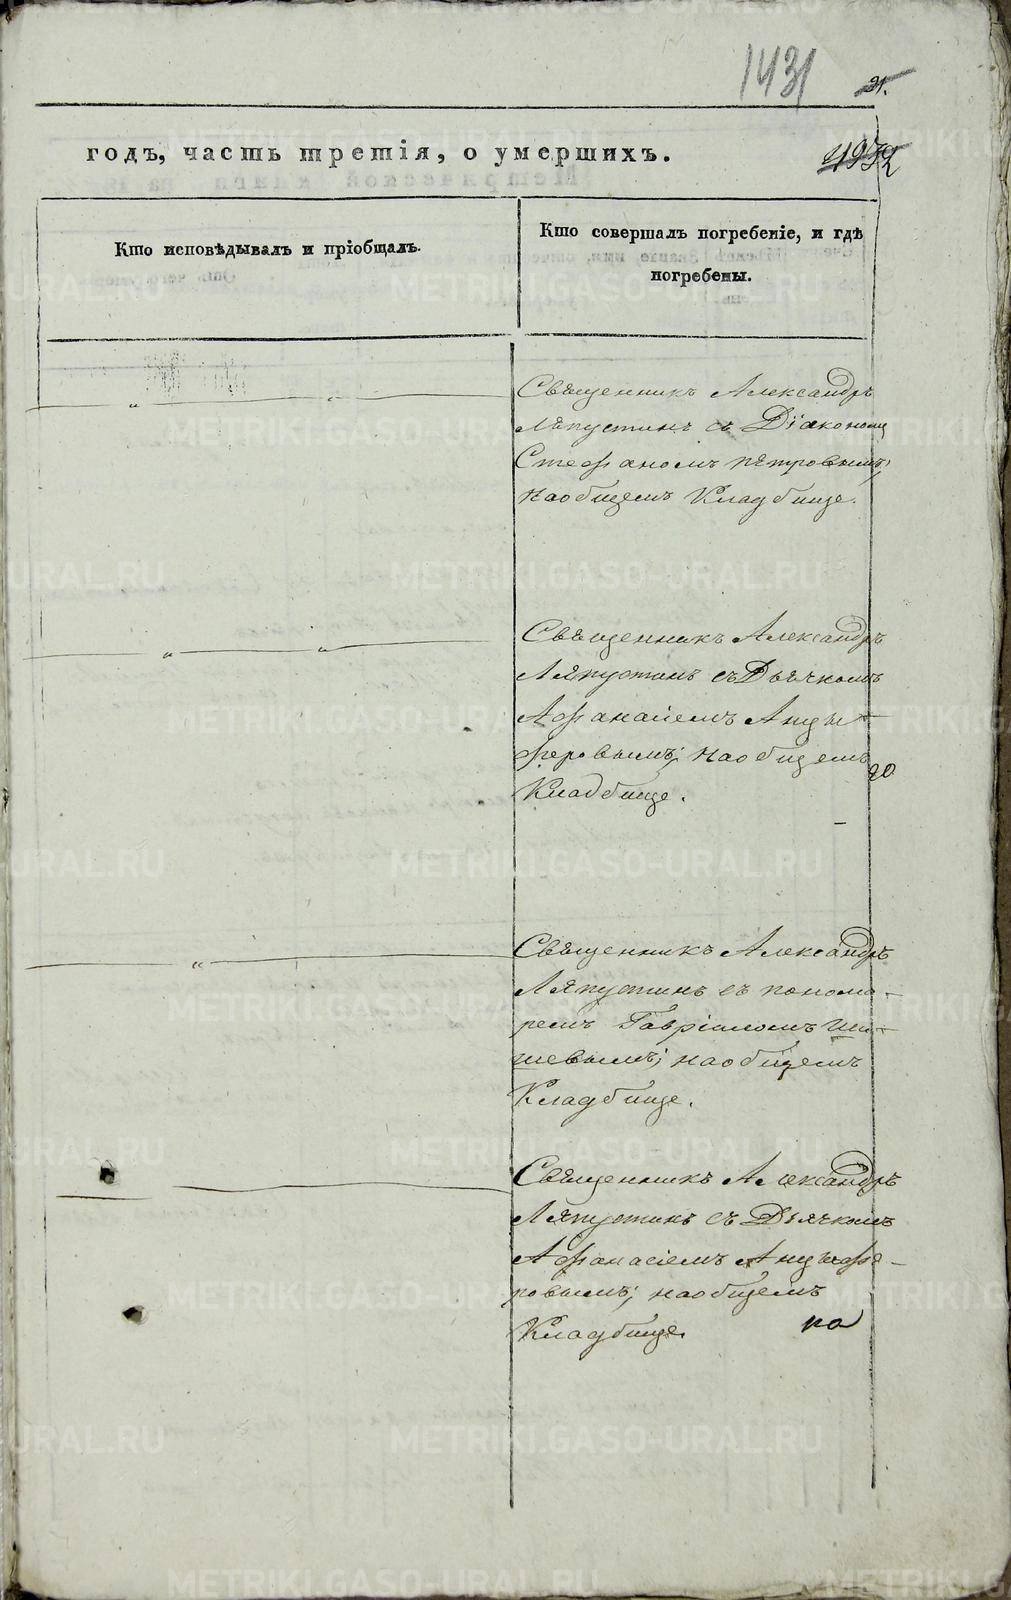 1431
21.
годъ, часть третія, о умершихъ.
Кто исповѣдывалъ и пріобщалъ.
Кто совершалъ погребеніе, и гдѣ
погребены.
Священникъ Александръ
Ляпустинъ съ Діакономъ
Стефаномъ Петровымъ;
на общемъ Кладбище.
Священникъ Александръ
Ляпустинъ съ Дьячкомъ
Афанасіемъ Анцы-
феровымъ; на общемъ
Кладбище.
Священникъ Александръ
Ляпустинъ съ понома-
ремъ Гавріиломъ Ши-
шевымъ; на общемъ
Кладбище.
Священникъ Александръ
Ляпустинъ съ Дьячкомъ
Афанасіемъ Анцыфе-
ровымъ; на общемъ
Кладбище.
по
METRIKI.GASO-URAL.RU